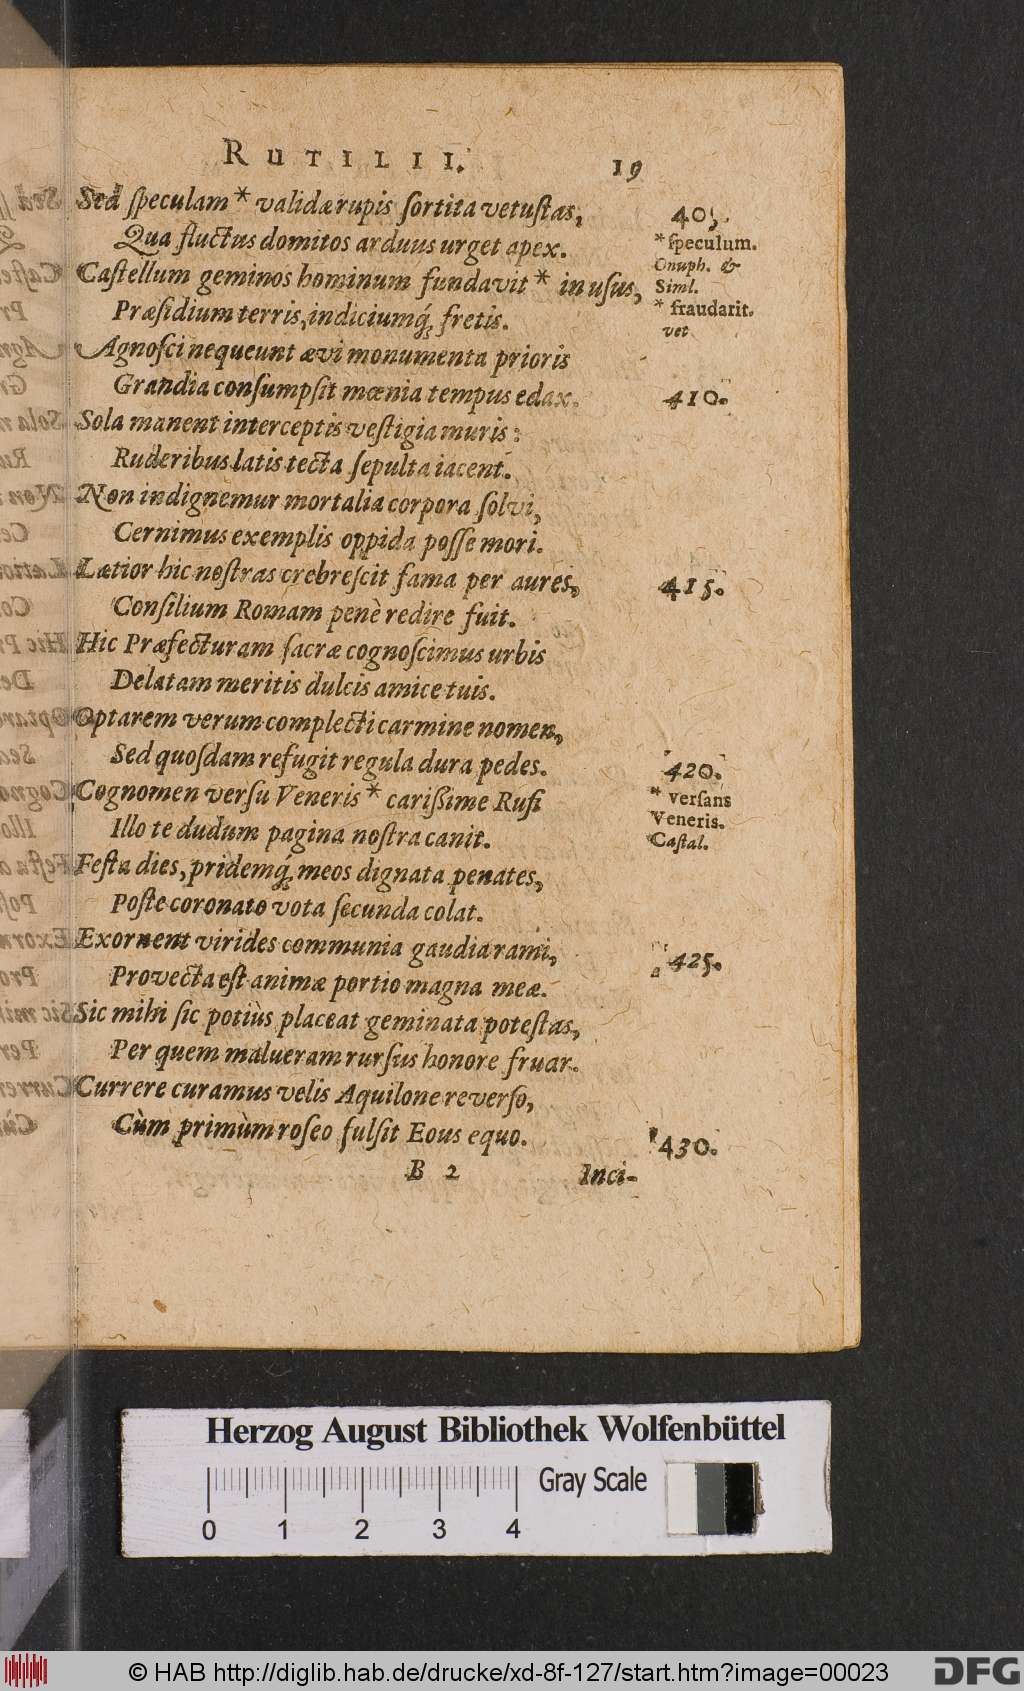 RUTILII. 19
Sed ſpeculam * validæ rupis ſortita vetuſtas, 405.
Qua fluctus domitos arduus urget apex. * ſpeculum.
Onuph. &
Caſtellum geminos hominum fundavit * in uſus, Siml.
Præſidium terris, indiciumq́; fretis. * fraudarit.
vet
Agnoſci nequeunt ævi monumenta prioris
Grandia conſumpſit mœnia tempus edax. 410.
Sola manent interceptis veſtigia muris:
Ruderibus latis tecta ſepulta iacent.
Non indignemur mortalia corpora ſolvi,
Cernimus exemplis oppida poſſe mori.
Lætior hic noſtras crebreſcit fama per aures, 415.
Conſilium Romam penè redire fuit.
Hic Præfecturam ſacræ cognoſcimus urbis
Delatam meritis dulcis amice tuis.
Optarem verum complecti carmine nomen,
Sed quoſdam refugit regula dura pedes. 420.
Cognomen verſu Veneris * cariſſime Rufi * verſans
Veneris.
Illo te dudum pagina noſtra canit. Caſtal.
Feſta dies, pridemq́; meos dignata penates,
Poſte coronato vota ſecunda colat.
Exornent virides communia gaudia rami, 425.
Provecta eſt animæ portio magna meæ.
Sic mihi ſic potiùs placeat geminata poteſtas,
Per quem malueram rurſus honore fruar.
Currere curamus velis Aquilone reverſo,
Cùm primùm roſeo fulſit Eous equo. 430.
B 2 Inci-
Herzog August Bibliothek Wolfenbüttel
Gray Scale
0 1 2 3 4
© HAB http://diglib.hab.de/drucke/xd-8f-127/start.htm?image=00023
DFG